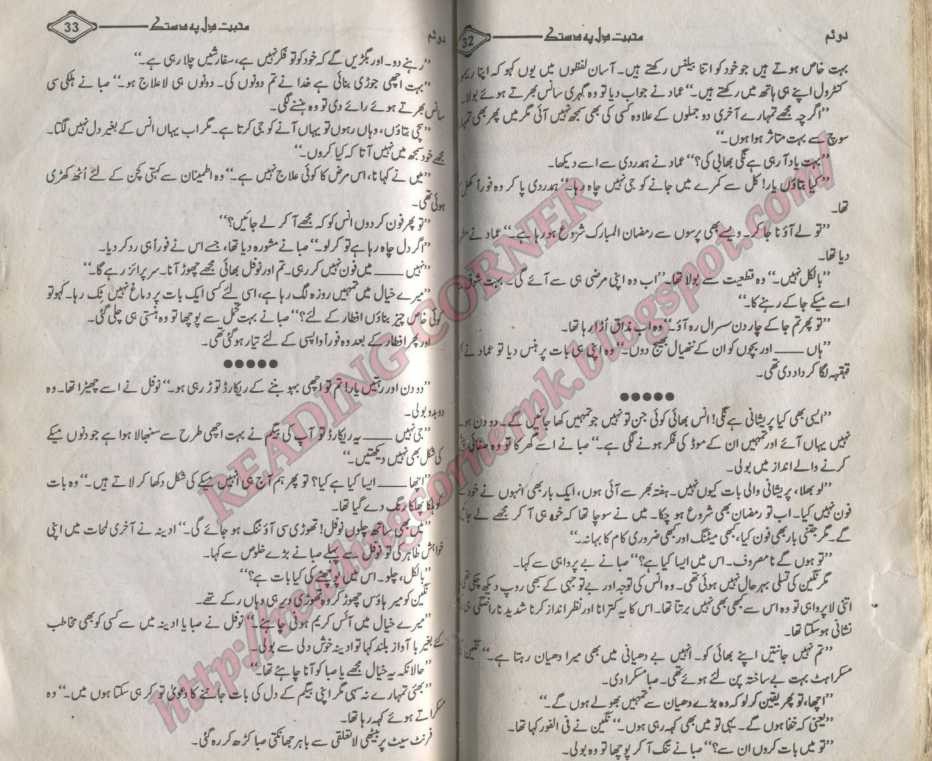 دوئم
محبت دل پہ دستک
32
بہت خاص ہوتے ہیں جو خود کو اتنا بیلنس رکھتے ہیں۔ آسان لفظوں میں یوں کہو کہ اپنا ریمو
کنٹرول اپنے ہی ہاتھ میں رکھتے ہیں۔“ عماد نے جواب دیا تو وہ گہری سانس بھرتے ہوئے بولا۔
”اگرچہ مجھے تمہارے آخری دو جملوں کے علاوہ کسی کی بھی سمجھ نہیں آئی مگر میں پھر بھی تمہا
سوچ سے بہت متاثر ہوا ہوں۔“
”بہت یاد آ رہی ہے نگی بھابی کی؟“ عماد نے ہمدردی سے اسے دیکھا۔
”کیا بتاؤں یار! کل سے کمرے میں جانے کو جی نہیں چاہ رہا۔“ ہمدردی پا کر وہ فوراً کھل
تھا۔
”تو لے آؤ نا جا کر۔ ویسے بھی پرسوں سے رمضان المبارک شروع ہو رہا ہے۔“ عماد نے
دیا تھا۔
”بالکل نہیں۔“ وہ قطعیت سے بولا تھا۔ ”اب وہ اپنی مرضی ہی سے آئے گی۔ بہت شوق
اسے میکے جا کے رہنے کا۔“
”تو پھر تم جا کے چار دن سسرال رہ آؤ۔“ وہ اب مذاق اُڑا رہا تھا۔
”ہاں ـــــ اور بچوں کو ان کے ننھیال بھیج دوں۔“ وہ اپنی ہی بات پر ہنس دیا تو عماد نے
قہقہہ لگا کر داد دی تھی۔
●●●●●
”ایسی بھی کیا پریشانی ہے نگی! انس بھائی کوئی جن تو نہیں جو تمہیں کھا جائیں گے۔ دو دن ہو
نہیں یہاں آئے اور تمہیں ان کے موڈ کی فکر ہونے لگی ہے۔“ صبا نے اسے گھرکا تو وہ صفائی
کرنے والے انداز میں بولی۔
”لو بھلا، پریشانی والی بات کیوں نہیں۔ ہفتہ بھر سے آئی ہوں، ایک بار بھی انہوں نے خود
فون نہیں کیا۔ اب تو رمضان بھی شروع ہو چکا۔ میں نے سوچا تھا کہ خود ہی آ کر مجھے لے جا
گے۔ مگر جتنی بار بھی فون کیا، کبھی میٹنگ اور کبھی ضروری کام کا بہانہ۔“
”تو ہوں گے نا مصروف۔ اس میں ایسا کیا ہے؟“ صبا نے بے پروائی سے کہا۔
مگر نگین کی تسلی بہرحال نہیں ہوئی تھی۔ وہ انس کی توجہ اور بے توجہی کے سبھی روپ دیکھ چکی تھی
اتنی لاپرواہی تو وہ اس سے کبھی بھی نہیں برتتا تھا۔ اس کا یہ کترانا اور نظر انداز کرنا شدید ناراضگی
نشانی ہو سکتا تھا۔
”تم نہیں جانتیں اپنے بھائی کو۔ انہیں بے دھیانی میں بھی میرا دھیان رہتا ہے۔“ نگین
مسکراہٹ بہت بے ساختہ پن لئے ہوئے تھی۔ صبا مسکرا دی۔
”اچھا، تو پھر یقین کر لو کہ وہ بڑے دھیان سے تمہیں بھولے ہوں گے۔“
”یعنی کہ خفا ہوں گے۔ یہی تو میں بھی کہہ رہی ہوں۔“ نگین نے فی الفور کہا تھا۔
”تو میں بات کروں ان سے؟“ صبا نے تنگ آ کر پوچھا تو وہ بولی۔
دوئم
محبت دل پہ دستک
33
”رہنے دو۔ اور بگڑیں گے کہ خود کو تو فکر نہیں ہے، سفارشیں چلا رہی ہے۔“
”بہت اچھی جوڑی بنائی ہے خدا نے تم دونوں کی۔ دونوں ہی لاعلاج ہو۔“ صبا نے ہلکی سی
سانس بھرتے ہوئے رائے دی تو وہ ہنسنے لگی۔
”سچی بتاؤں، وہاں رہوں تو یہاں آنے کو جی کرتا ہے۔ مگر اب یہاں انس کے بغیر دل نہیں لگتا۔
مجھے خود سمجھ میں نہیں آتا کہ کیا کروں۔“
”میں نے کہا نا، اس مرض کا کوئی علاج نہیں ہے۔“ وہ اطمینان سے کہتی کچن کے لئے اُٹھ کھڑی
ہوئی تھی۔
”تو پھر فون کر دوں انس کو کہ مجھے آ کر لے جائیں؟“
”اگر دل چاہ رہا ہے تو کر لو۔“ صبا نے مشورہ دیا تھا، جسے اس نے فوراً ہی رد کر دیا۔
”نہیں ـــــ میں فون نہیں کر رہی۔ تم اور نوفل بھائی مجھے چھوڑ آنا۔ سرپرائز رہے گا۔“
”میرے خیال میں تمہیں روزہ لگ رہا ہے، اسی لئے کسی ایک بات پر دماغ نہیں ٹک رہا۔ کہو تو
کوئی خاص چیز بناؤں افطار کے لئے؟“ صبا نے بہت تحمل سے پوچھا تو وہ ہنستی ہی چلی گئی۔
اور پھر افطار کے بعد وہ فوراً واپسی کے لئے تیار ہو گئی تھی۔
●●●●●
”دو دن اور رہتیں یار! تم تو اچھی بہو بننے کے ریکارڈ توڑ رہی ہو۔“ نوفل نے اسے چھیڑا تھا۔ وہ
دوبدو بولی۔
”جی نہیں ـــــ یہ ریکارڈ تو آپ کی بیگم نے بہت اچھی طرح سے سنبھالا ہوا ہے جو دنوں میکے
کی شکل بھی نہیں دیکھتیں۔“
”اچھا ـــــ ایسا کیا ہے کیا؟ تو پھر ہم آج ہی انہیں میکے کی شکل دکھا کر لاتے ہیں۔“ وہ بات
کو ہلکا پھلکا رنگ دے گیا تھا۔
”میں بھی ساتھ چلوں نوفل! تھوڑی سی آؤٹنگ ہو جائے گی۔“ ادینہ نے آخری لمحات میں اپنی
خواہش ظاہر کی تو نوفل سے پہلے صبا نے بڑے خلوص سے کہا۔
”بالکل، چلو۔ اس میں پوچھنے کی کیا بات ہے؟“
نگین کو میر ہاؤس چھوڑ کر وہ تھوڑی دیر ہی وہاں رکے تھے۔
”میرے خیال میں آئس کریم ہونی چاہئے۔“ نوفل نے صبا یا ادینہ میں سے کسی کو بھی مخاطب
کئے بغیر با آواز بلند کہا تو ادینہ خوش دلی سے بولی۔
”حالانکہ یہ خیال مجھے یا صبا کو آنا چاہئے تھا۔“
”بھئی تمہارے نہ سہی مگر اپنی بیگم کے دل کی بات جاننے کا دعویٰ تو کر ہی سکتا ہوں میں۔“ وہ
مسکراتے ہوئے کہہ رہا تھا۔
فرنٹ سیٹ پر بیٹھی لاتعلقی سے باہر جھانکتی صبا کڑھ کر رہ گئی۔
READING CORNER
http://readingcornerpk.blogspot.com/